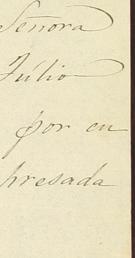 Señora
Júlio
por en
presada